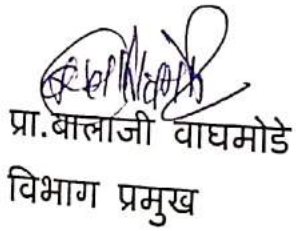 प्रा.बालाजी वाघमोडे
विभाग प्रमुख